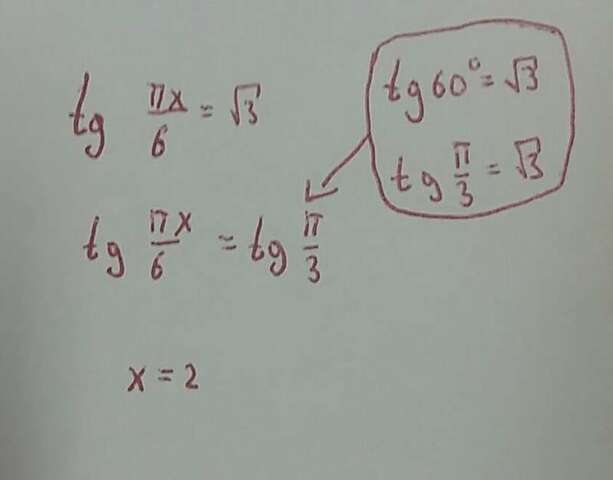 tg πx/6 = √3
tg 60° = √3
tg π/3 = √3
tg πx/6 = tg π/3
x = 2